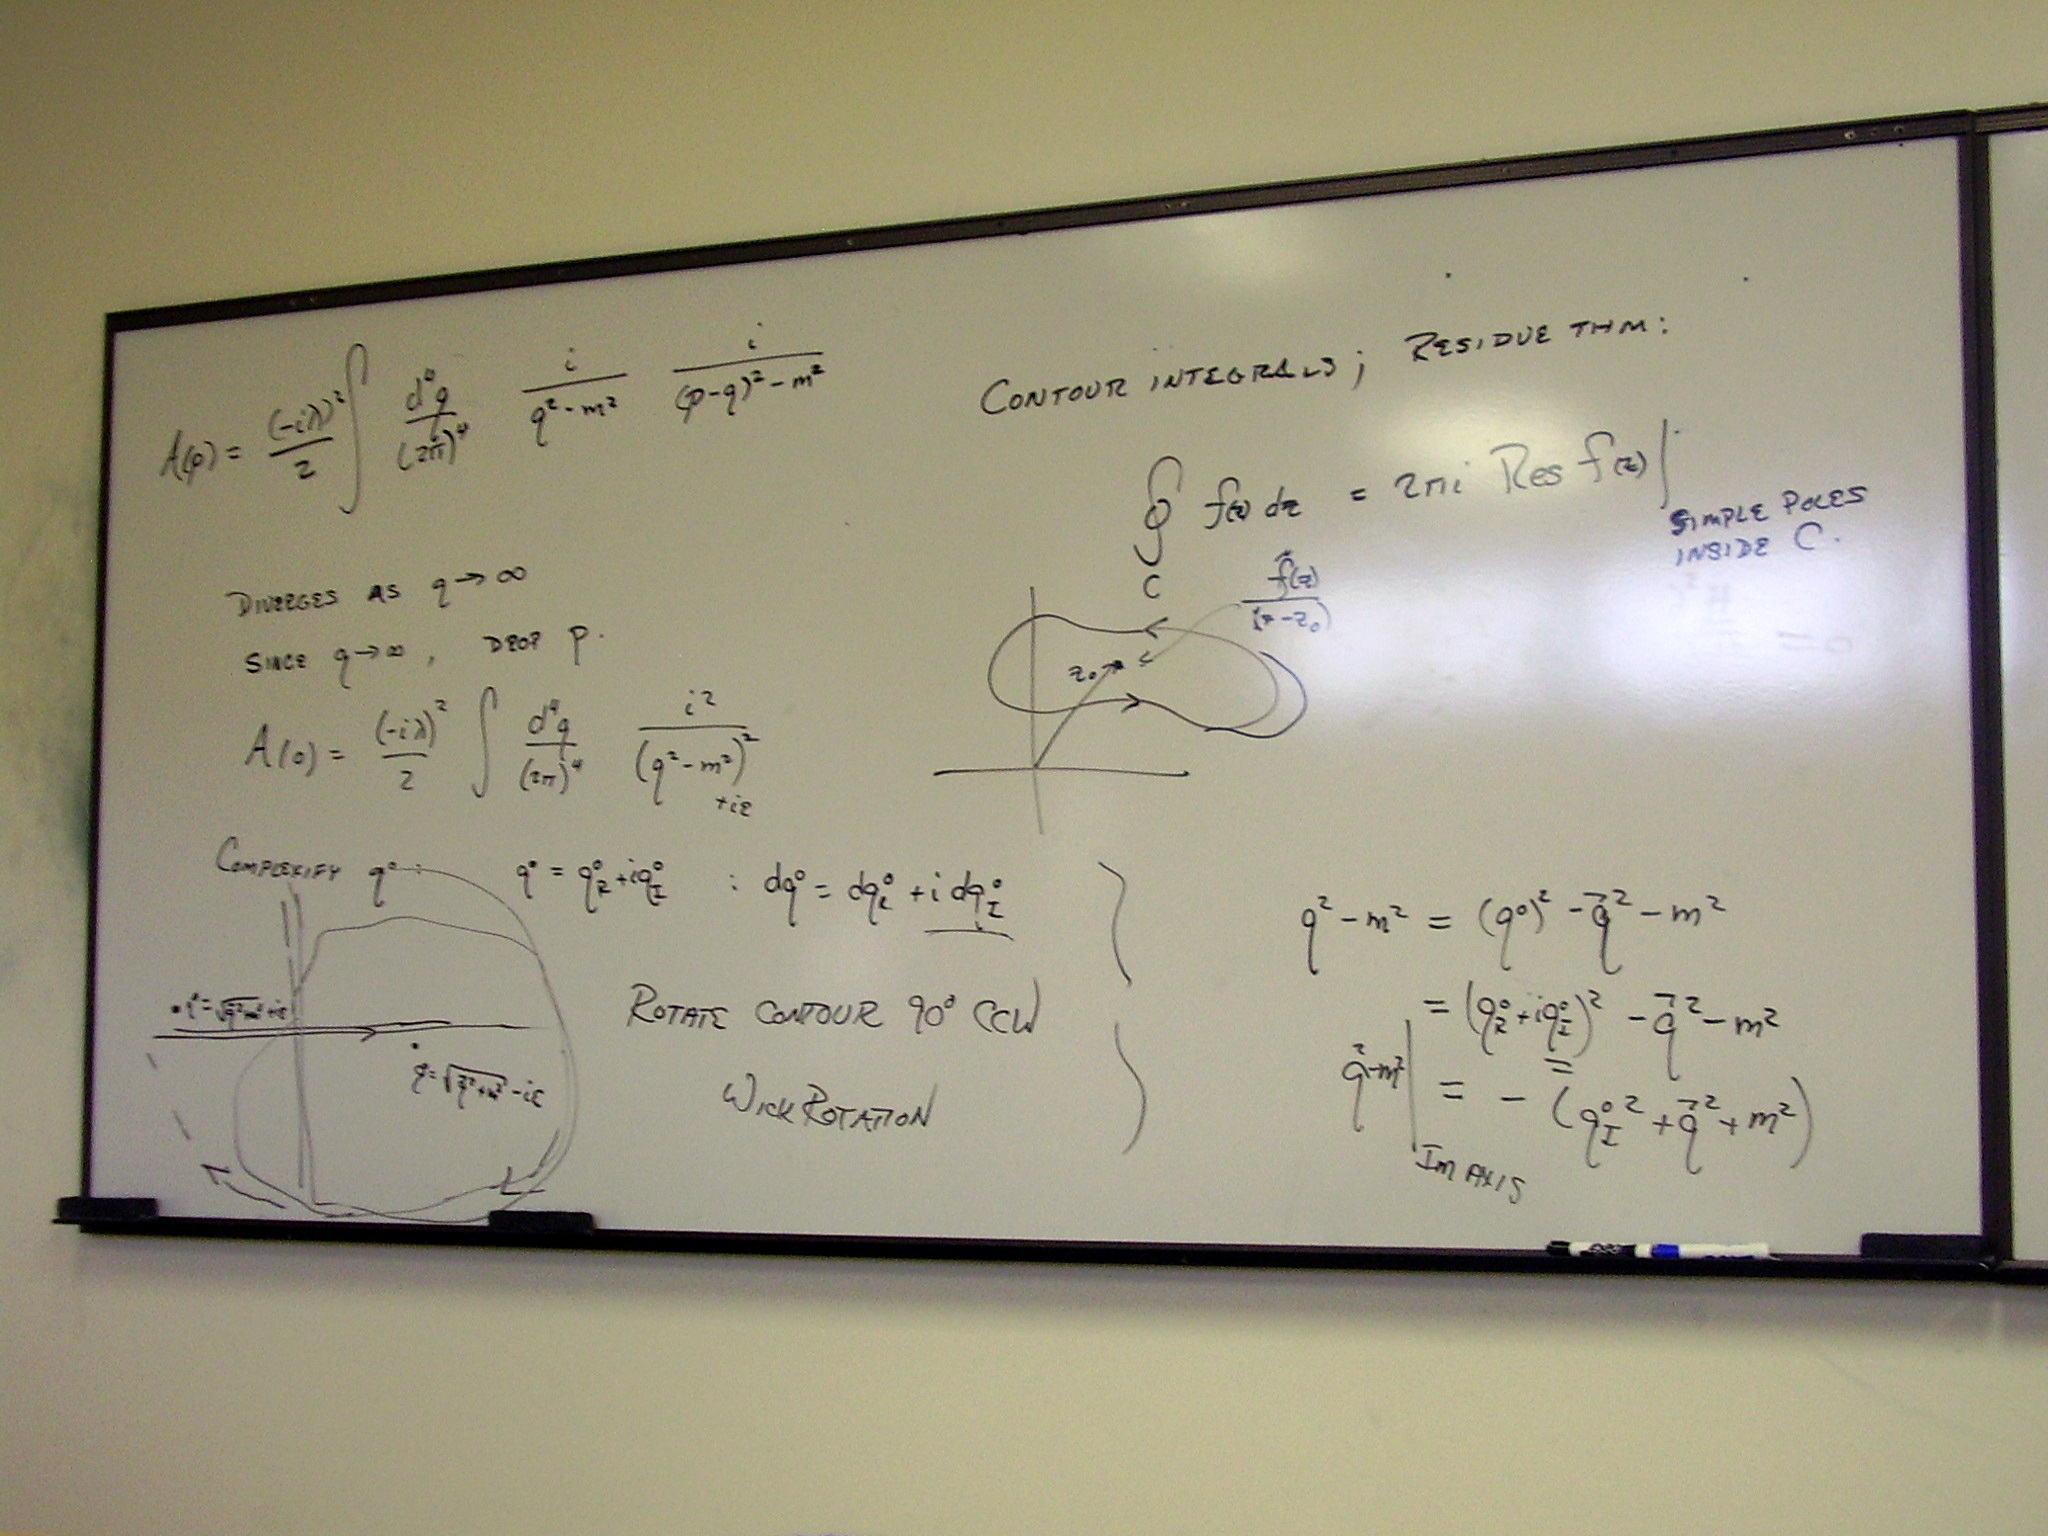 A(p) = (-iλ)²/2 ∫ d⁴q/(2π)⁴ i/(q² - m²) i/((p-q)² - m²)
DIVERGES AS q → ∞
SINCE q → ∞, DROP p.
A(0) = (-iλ)²/2 ∫ d⁴q/(2π)⁴ i²/(q² - m²)²
+iε
COMPLEXIFY q⁰:
q⁰ = q⁰_R + iq⁰_I : dq⁰ = dq⁰_R + i dq⁰_I
q⁰ = √(q⃗²+m²) - iε
ROTATE CONTOUR 90° CCW
WICK ROTATION
CONTOUR INTEGRALS; RESIDUE THM:
∮_C f(z) dz = 2πi Res f(z)|
SIMPLE POLES
INSIDE C.
f̃(z)/(z - z₀)
z₀
q² - m² = (q⁰)² - q⃗² - m²
= (q⁰_R + iq⁰_I)² - q⃗² - m²
q² - m²| = - (q⁰_I² + q⃗² + m²)
IM AXIS